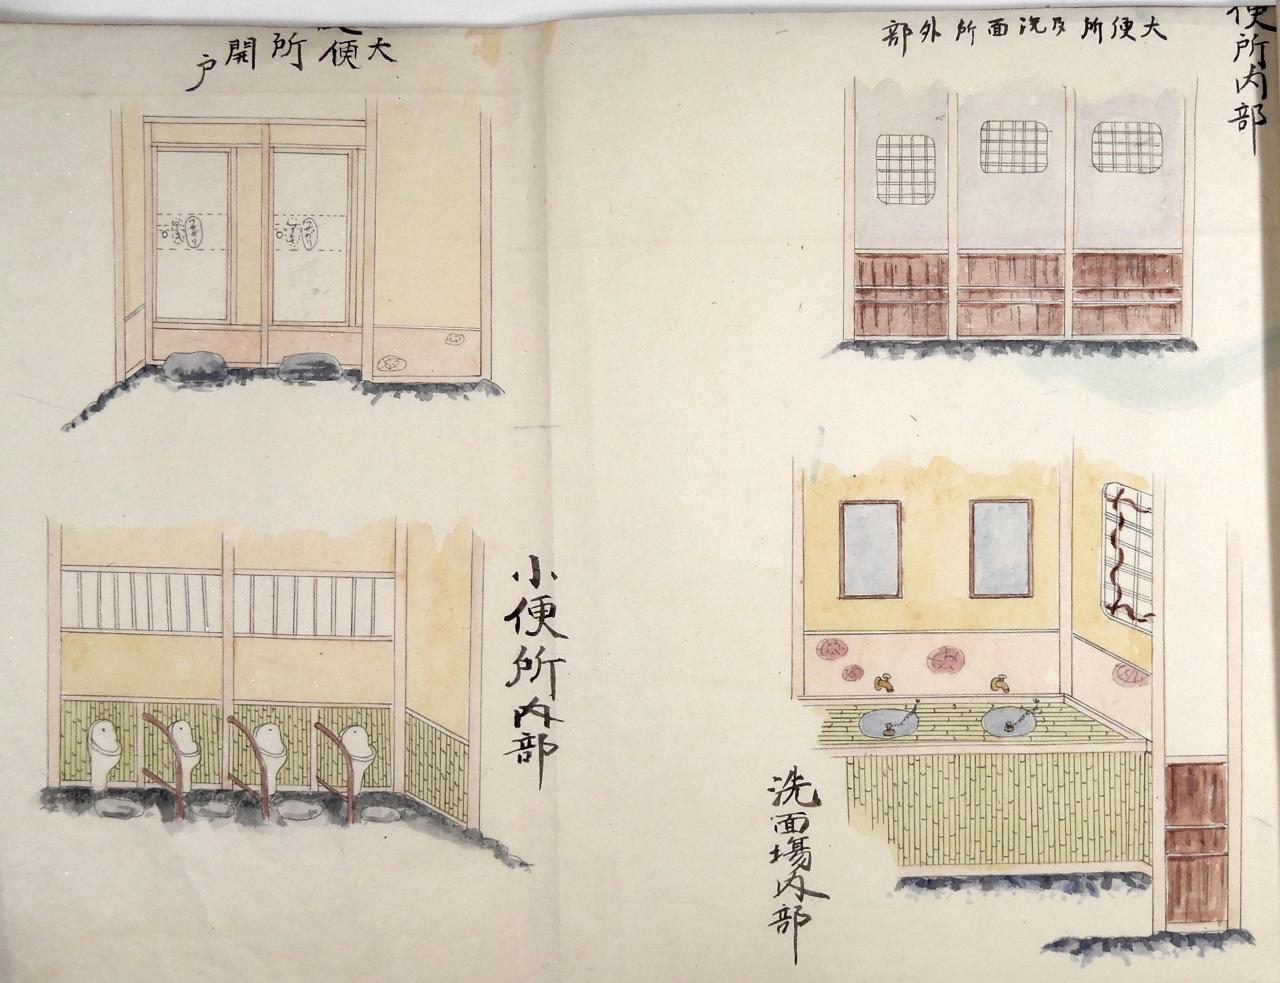 大便所及洗面所外部
便所内部
大便所開戸
小便所内部
洗面場内部